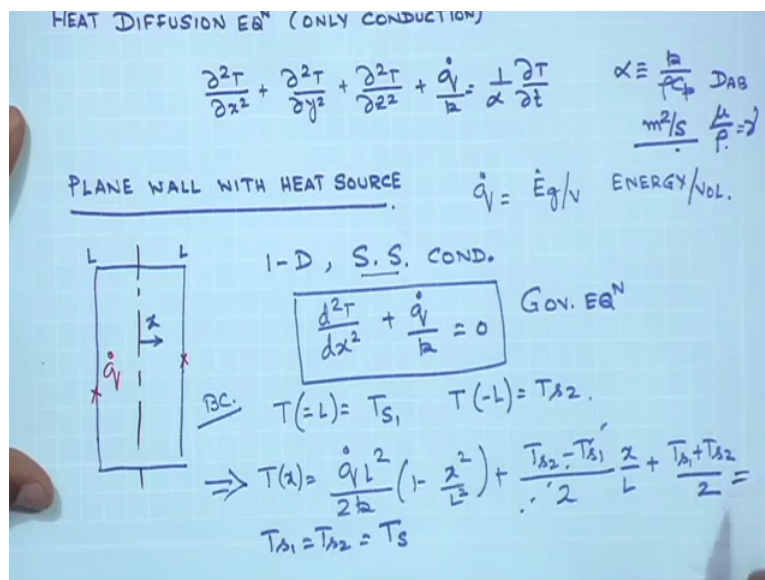 HEAT DIFFUSION EQᴺ (ONLY CONDUCTION)
∂²T/∂x² + ∂²T/∂y² + ∂²T/∂z² + q̇/k = 1/α ∂T/∂t
α ≡ k/ρCp DAB
m²/s μ/ρ = ν
PLANE WALL WITH HEAT SOURCE
q̇ = Ėg/v ENERGY/VOL.
L L
x
q̇
1-D, S.S. COND.
d²T/dx² + q̇/k = 0 GOV. EQᴺ
BC. T(=L) = Ts1 T(-L) = Ts2.
⇒ T(x) = q̇L²/2k (1 - x²/L²) + Ts2 - Ts1/2 x/L + Ts1 + Ts2/2 =
Ts1 = Ts2 = Ts